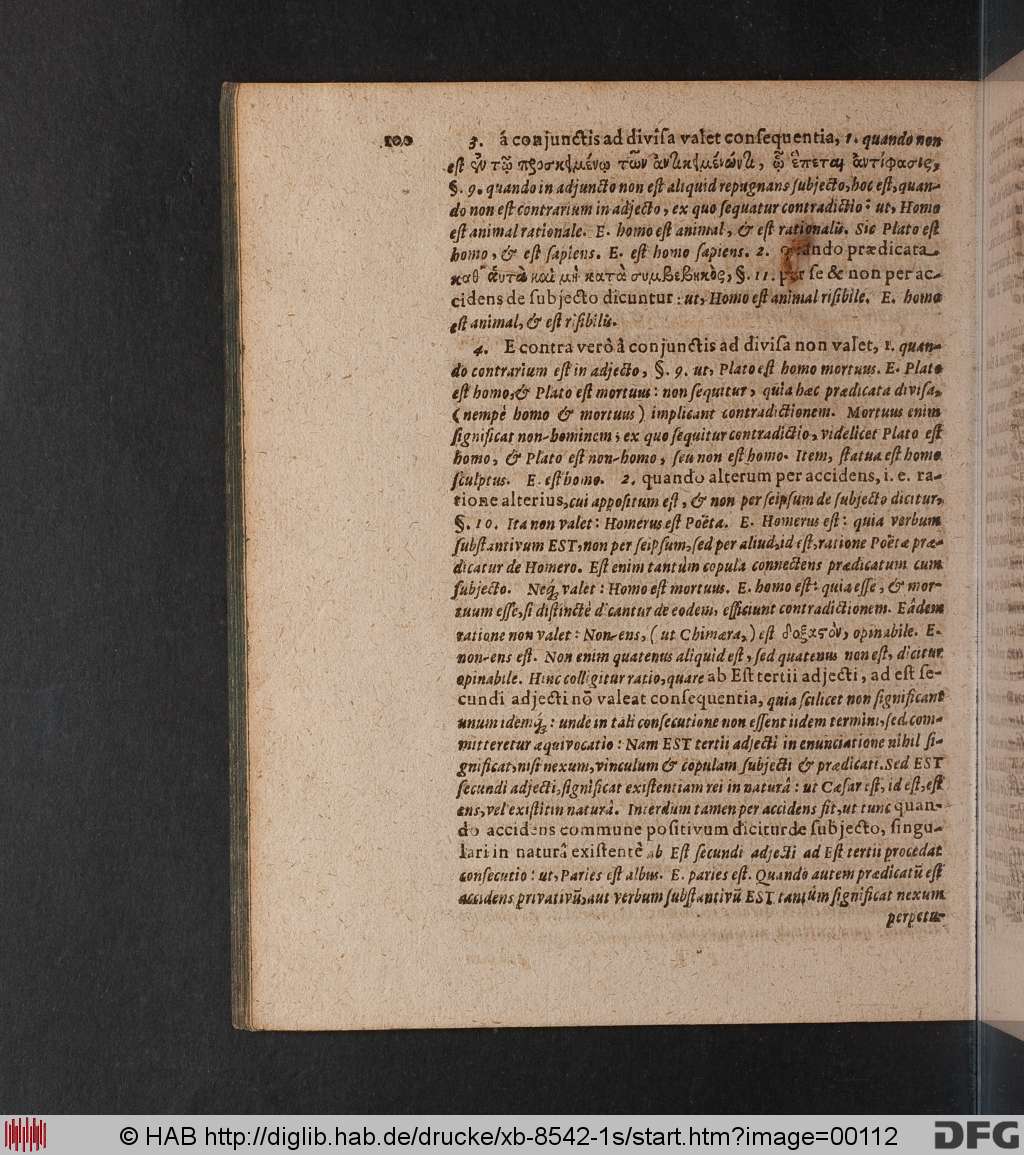 100
3. á conjunctis ad divisa valet consequentia, 1. quando non
est ἐν τῷ προσκειμένῳ τῶν ἀντικειμένων, ᾧ ἕπεται ἀντίφασις,
§. 9. quando in adjuncto non est aliquid repugnans subjecto, hoc est, quan-
do non est contrarium in adjecto, ex quo sequatur contradictio: ut, Homo
est animal rationale. E. homo est animal, & est rationalis. Sic Plato est
homo, & est sapiens. E. est homo sapiens. 2. quando prædicata
καθ' ἁυτὰ καὶ μὴ κατὰ συμβεβηκὸς, §. 11. per se & non per ac-
cidens de subjecto dicuntur: ut, Homo est animal risibile. E. homo
est animal, & est risibilis.
4. E contra verò â conjunctis ad divisa non valet, 1. quan-
do contrarium est in adjecto, §. 9. ut, Plato est homo mortuus. E. Plato
est homo, & Plato est mortuus: non sequitur, quia hæc prædicata divisa,
(nempè homo & mortuus) implicant contradictionem. Mortuus enim
significat non-hominem; ex quo sequitur contradictio, videlicet Plato est
homo, & Plato est non-homo, seu non est homo. Item, statua est homo
sculptus. E. est homo. 2. quando alterum per accidens, i. e. ra-
tione alterius, cui appositum est, & non per seipsum de subjecto dicitur,
§. 10. Ita non valet: Homerus est Poëta. E. Homerus est: quia verbum
substantivum EST, non per seipsum, sed per aliud, id est, ratione Poëtæ præ-
dicatur de Homero. Est enim tantùm copula connectens prædicatum cum
subjecto. Neq; valet: Homo est mortuus. E. homo est: quia esse, & mor-
tuum esse, si distinctè dicantur de eodem, efficiunt contradictionem. Eâdem
ratione non valet: Non-ens, (ut Chimæra,) est δοξαστὸν, opinabile. E.
non-ens est. Non enim quatenus aliquid est, sed quatenus non est, dicitur
opinabile. Hinc colligitur ratio, quare ab Est tertii adjecti, ad est se-
cundi adjecti nō valeat consequentia, quia scilicet non significant
unum idemq́;: unde in tali consecutione non essent iidem termini, sed com-
mitteretur æquivocatio: Nam EST tertii adjecti in enunciatione nihil si-
gnificat, nisi nexum, vinculum & copulam subjecti & prædicati. Sed EST
secundi adjecti, significat existentiam rei in naturâ: ut Cæsar est, id est, est
ens, vel existit in naturâ. Interdum tamen per accidens fit, ut tunc quan-
do accidens commune positivum dicitur de subjecto, singu-
lari in naturâ existentè ab Est secundi adjecti ad Est tertii procedat
consecutio: ut, Paries est albus. E. paries est. Quando autem prædicatū est
accidens privativū, aut verbum substantivū EST tantùm significat nexum
perpetu-
© HAB http://diglib.hab.de/drucke/xb-8542-1s/start.htm?image=00112
DFG